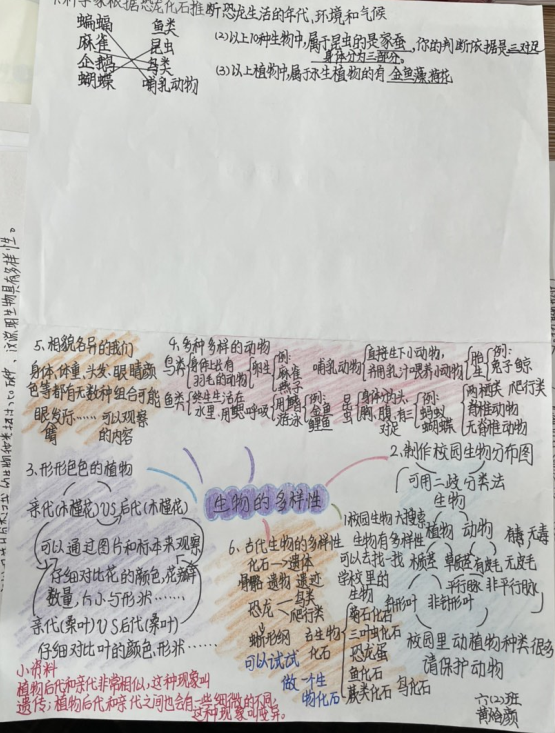 科学家根据恐龙化石推断恐龙生活的年代,环境和气候
蝙蝠 鱼类
麻雀 昆虫
企鹅 鸟类
蝴蝶 哺乳动物
(2)以上10种生物中,属于昆虫的是家蚕,你的判断依据是三对足
身体分为三部分。
(3)以上植物中,属于水生植物的有金鱼藻
5、相貌各异的我们
身体、体重、头发、眼睛颜
色等都有无数种组合可能
眼 发际……可以观察
的内容
4、多种多样的动物
鸟类 身体长有
羽毛的动物 卵生 例:
麻雀
燕子
鱼类 终生生活在
水里,用鳃呼吸 用鳍
游泳 例:
金鱼
鲤鱼
哺乳动物 直接生下小动物,
并用乳汁喂养小动物 胎
生 例:
兔子 鲸
昆
虫 身体分头、
胸、腹,有三
对足 例:
蚂蚁
蝴蝶
两栖类 爬行类
脊椎动物
无脊椎动物
3、形形色色的植物
亲代(木槿花)VS后代(木槿花)
可以通过图片和标本来观察
仔细对比花的颜色,花瓣
数量,大小与形状……
亲代(桑叶)VS后代(桑叶)
仔细对比叶的颜色,形状……
生物的多样性
2、制作校园生物分布图
可用二歧分类法
生物
植物 动物 有毒 无毒
有茎 有皮毛 无皮毛
平行脉 非平行脉
针形叶 非针形叶
校园里动植物种类很多
请保护动物
1、校园生物大搜索
生物有多样性
可以去找一找
学校里的
生物
6、古代生物的多样性
化石→遗体
遗物 遗迹
恐龙→鸟类
爬行类
古生物
化石
菊石化石
三叶虫化石
恐龙蛋
鱼化石
鸟化石
可以试试
做一个生
物化石
小资料
植物后代和亲代非常相似,这种现象叫
遗传;植物后代和亲代之间也会有一些细微的不同,
这种现象叫变异。
六(2)班